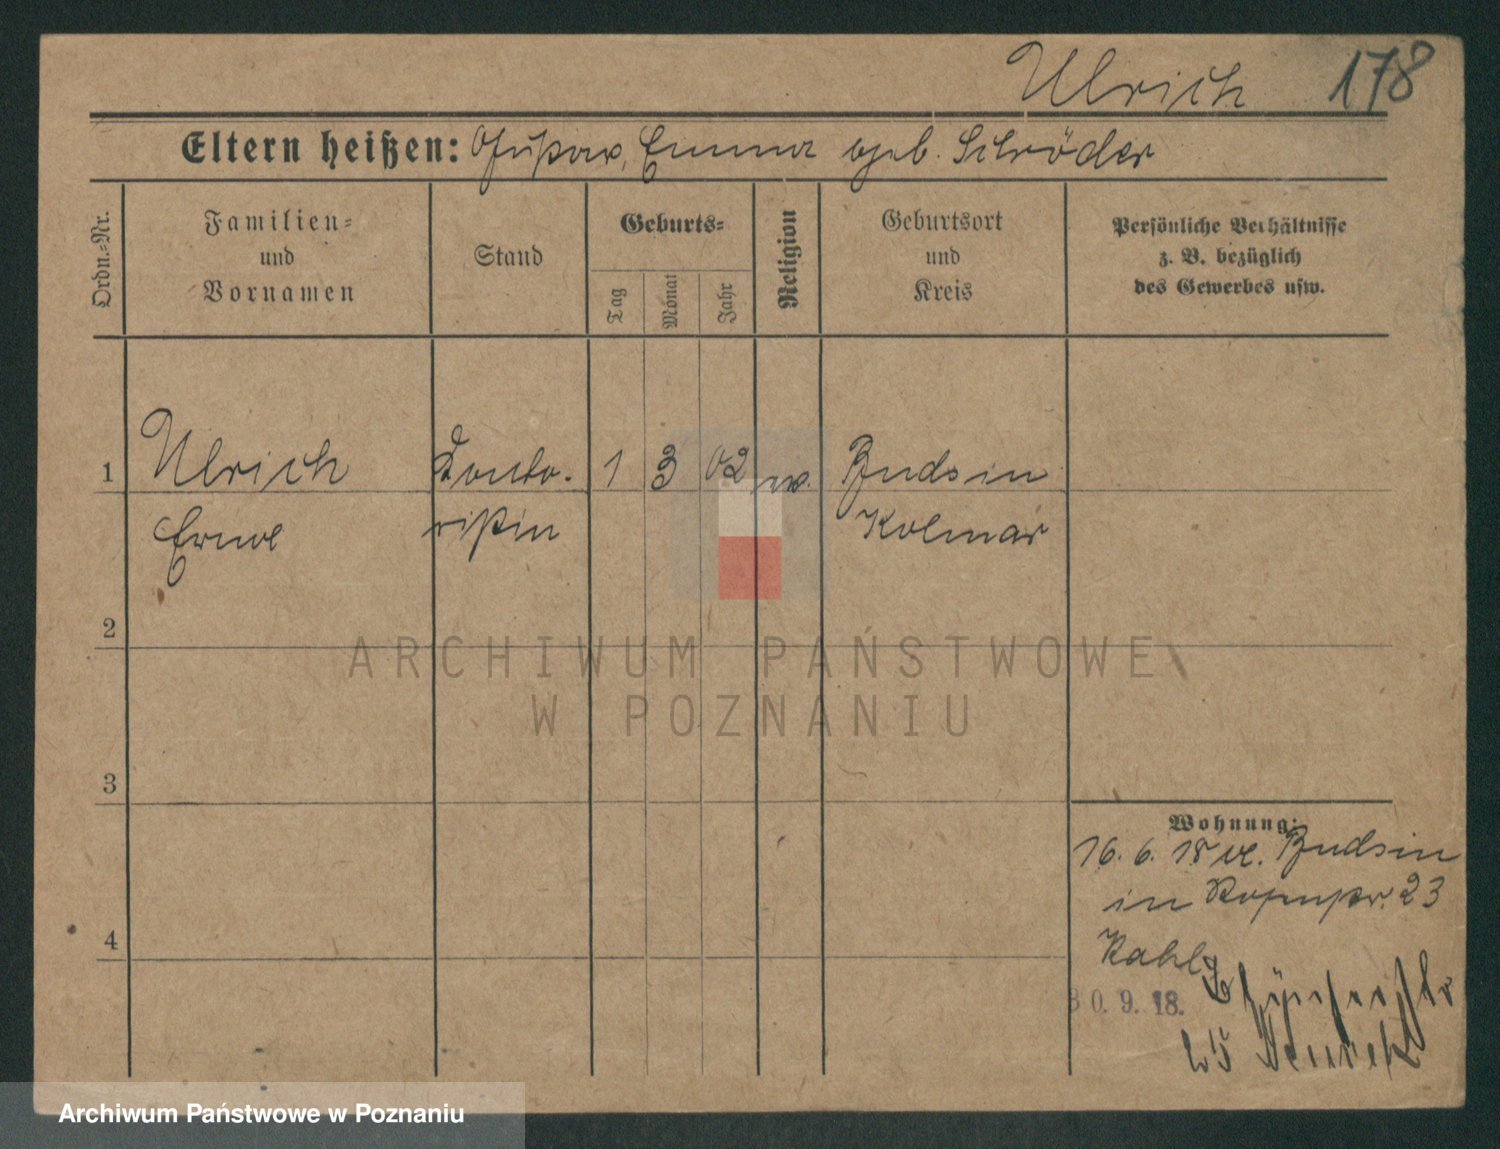 Ulrich 178
Eltern heißen: Gustav, Emma geb. Schröder
Ordn.-Nr.
Familien-
und
Vornamen
Stand
Geburts-
Tag
Monat
Jahr
Religion
Geburtsort
und
Kreis
Persönliche Verhältnisse
z. B. bezüglich
des Gewerbes usw.
1 Ulrich Konto- 1 3 02 ev. Budsin
Erna ristin Kolmar
2
3
4
Wohnung:
16. 6. 18 v. Budsin
in 23
Kahl
30. 9. 18.
ARCHIWUM PAŃSTWOWE
W POZNANIU
Archiwum Państwowe w Poznaniu